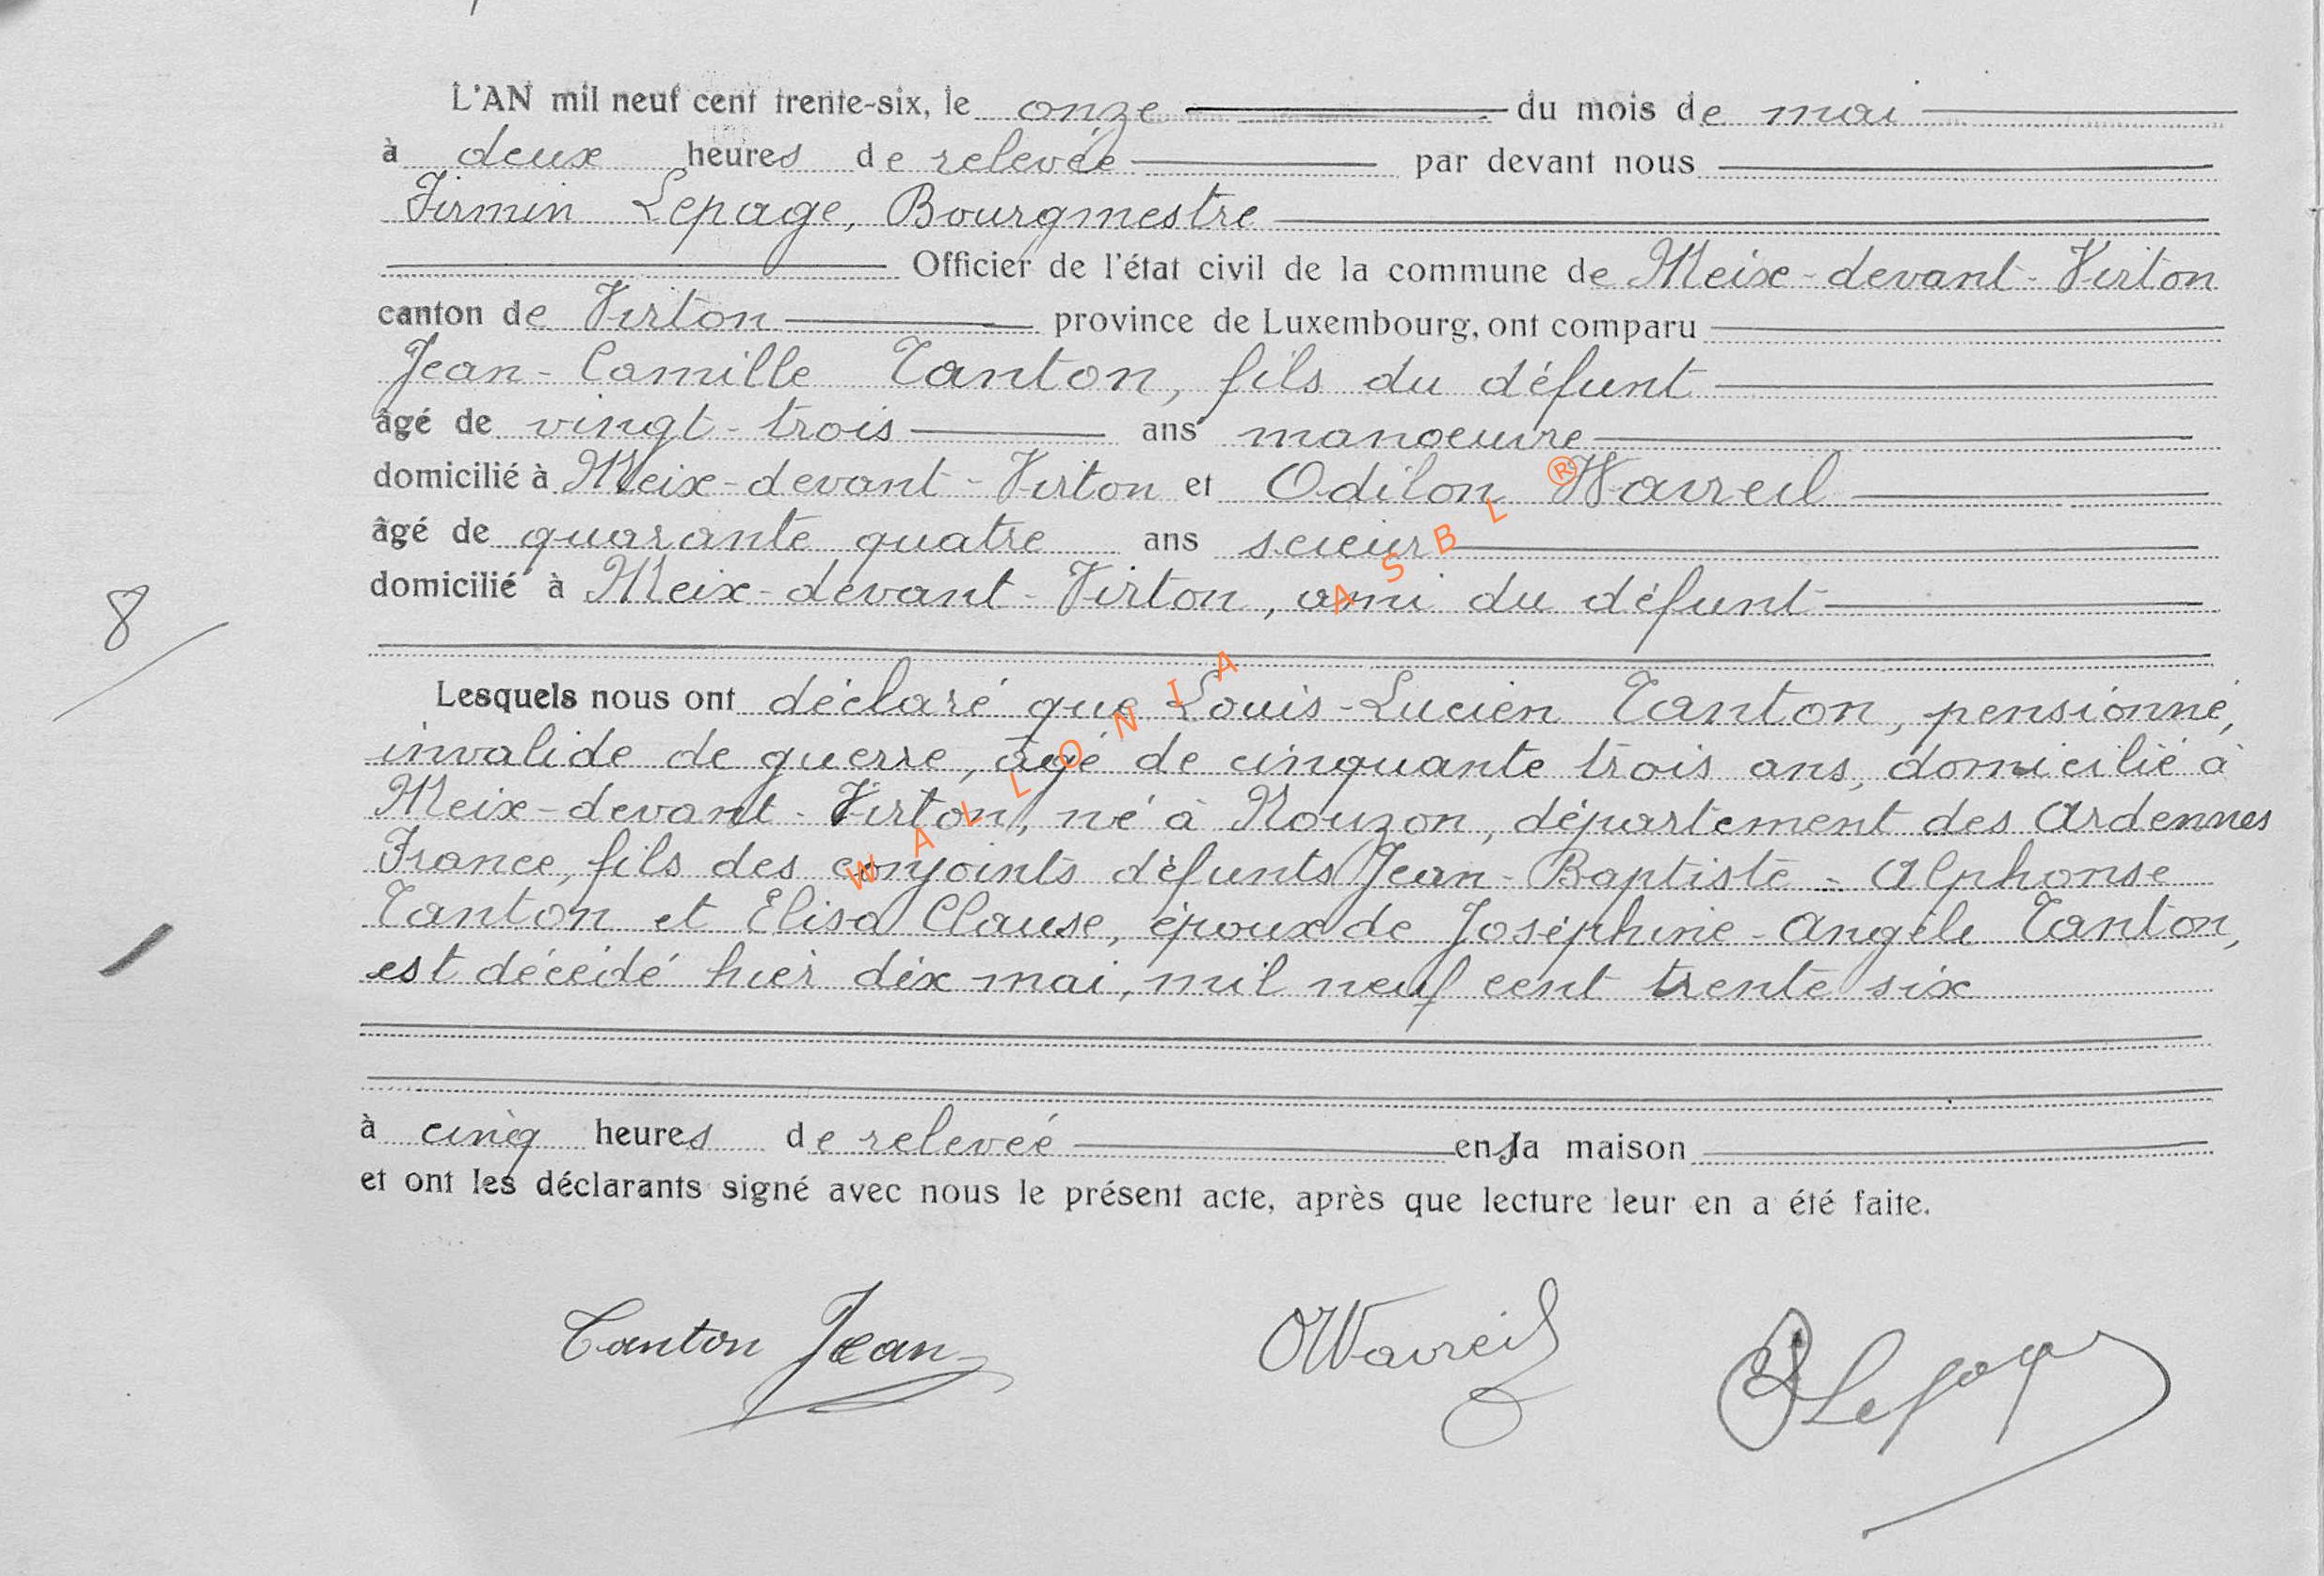 L'AN mil neuf cent trente-six, le onze du mois de mai
à deux heures de relevée par devant nous
Firmin Lepage, Bourgmestre
Officier de l'état civil de la commune de Meix-devant-Virton
canton de Virton province de Luxembourg, ont comparu
Jean-Camille Tanton, fils du défunt
âgé de vingt-trois ans manoeuvre
domicilié à Meix-devant-Virton et Odilon Wavreil
âgé de quarante quatre ans scieur
domicilié à Meix-devant-Virton, ami du défunt
8
Lesquels nous ont déclaré que Louis-Lucien Tanton, pensionné,
invalide de guerre, âgé de cinquante trois ans, domicilié à
Meix-devant-Virton, né à Nouzon, département des Ardennes
France, fils des conjoints défunts Jean-Baptiste-Alphonse
Tanton et Elisa Clause, époux de Joséphine-Angèle Tanton,
est décédé hier dix mai, mil neuf cent trente six
à cinq heures de relevée en sa maison
et ont les déclarants signé avec nous le présent acte, après que lecture leur en a été faite.
Tanton Jean OWavreil Lepage
WALLONIA ASBL ®